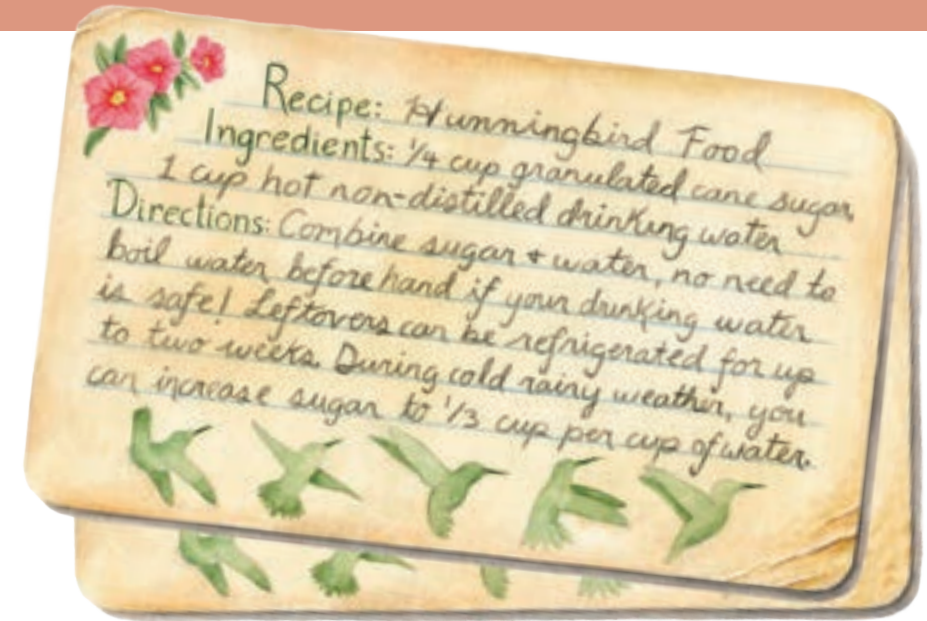 Recipe: Hunningbird Food
Ingredients: 1/4 cup granulated cane sugar
1 cup hot non-distilled drinking water
Directions: Combine sugar + water, no need to
boil water beforehand if your drinking water
is safe! Leftovers can be refrigerated for up
to two weeks. During cold rainy weather, you
can increase sugar to 1/3 cup per cup of water.